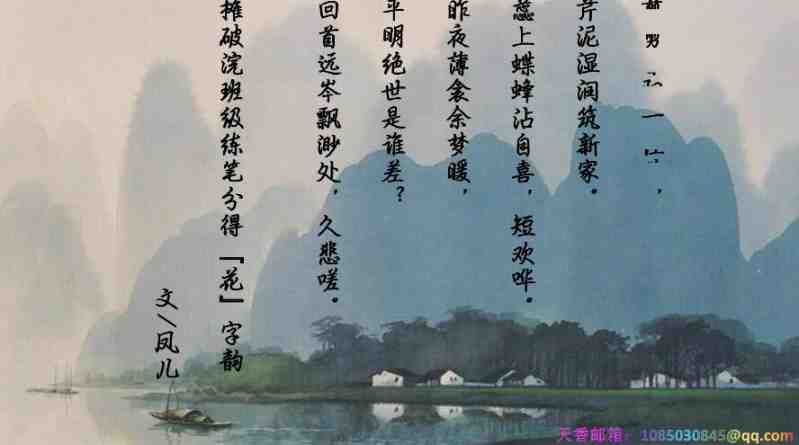 芹泥湿润筑新家。
蕊上蝶蜂沾自喜，短欢哗。
昨夜薄衾余梦暖，
平明绝世是谁差？
回首远岑飘渺处，久悲嗟。
摊破浣班级练笔分得『花』字韵
文\凤儿
天香邮箱：1085030845@qq.com